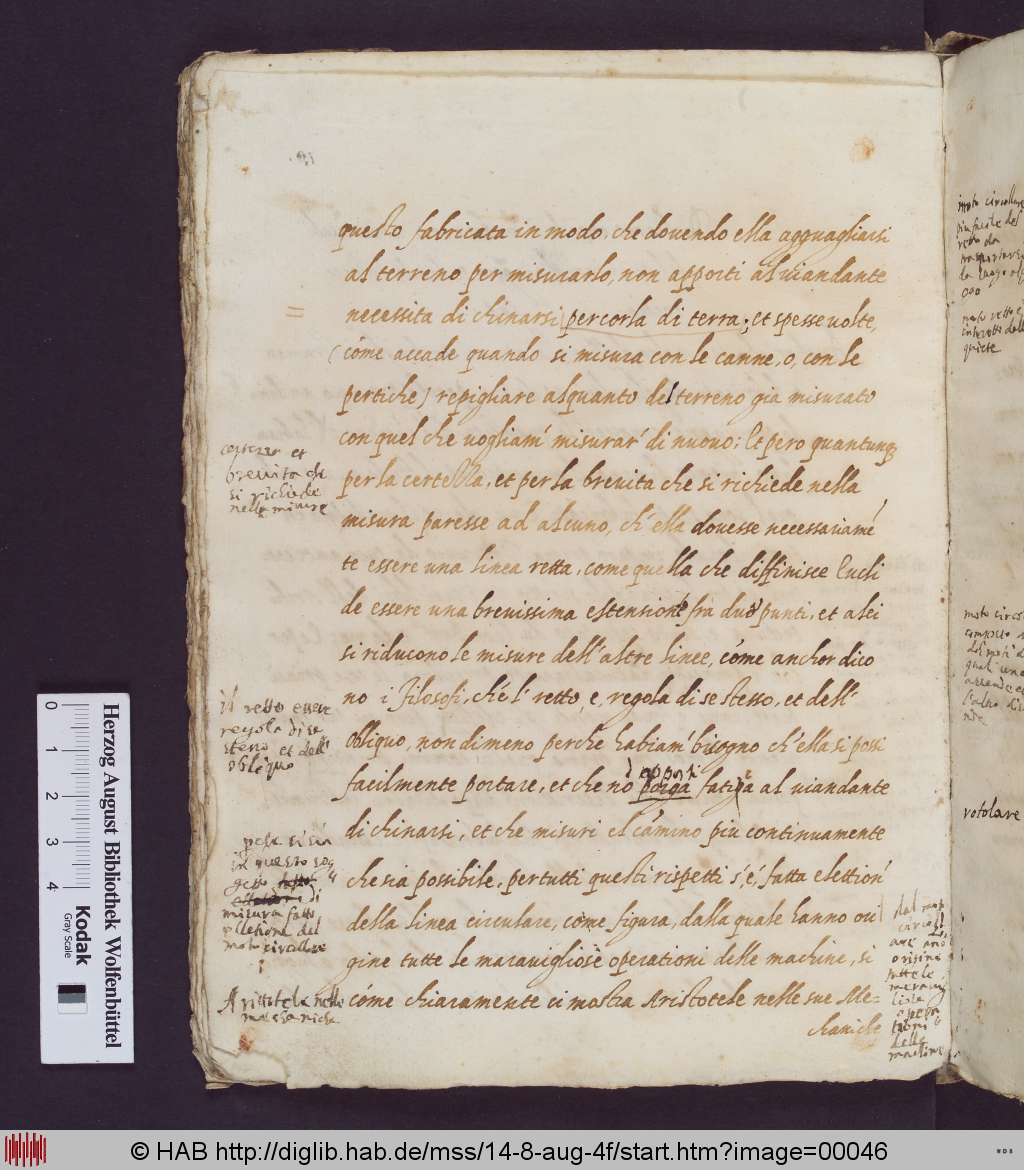 questo fabricata in modo, che dovendo ella agguagliarsi
al terreno per misurarlo, non apporti al viandante
necessita di chinarsi per corla di terra; et spesse volte,
(cóme accade quando si misura con le canne, o, con le
pertiche) repigliare alquanto del terreno gia misurato
con quel che vogliam' misurar' di nuovo; Et pero quantunq
per la certezza, et per la brevita che si richiede nella
misura paresse ad alcuno, ch'ella dovesse necessariamé
te essere una linea retta, come quella che diffinisce Eucli
de essere una brevissima estensione fra duo punti, et a lei
si riducono le misure dell'altre linee, cóme anchor dico
no i Filosofi, ché l'retto, e, regola di se stesso, et dell'
obliquo, non dimeno perche habiam' bisogno ch'ella si possi
facilmente portare, et che nó porga fatiga al viandante
apporti
di chinarsi, et che misuri el cámino piu continuamente
che sia possibile, per tutti questi rispetti s'é, fatta elettion'
della linea circulare, cóme figura, dalla quale hanno ori
gine tutte le maravigliose operationi delle machine, si
cóme chiaramente ci mostra Aristotele nelle sue Me=
chaniche
certezza et
brevita che
si richiede
nelle misure
il retto essere
regola di se
stesso et dell'
obliquo
in questo sog
getto
misura fatto
moto circullare
Aristotele nelle
mechaniche
dal moto
circul
are ano
origine
tutte le
meravig
liose
opera
tioni
delle
machine
moto circullare
piu facile del
retto da
trasportarsi
da luogo a l
moto retto e
interotto dalla
quiete
moto circol
composto
quali uno
l'altro
rotolare
0 1 2 3 4
Herzog August Bibliothek Wolfenbüttel
Kodak
Gray Scale
© HAB http://diglib.hab.de/mss/14-8-aug-4f/start.htm?image=00046